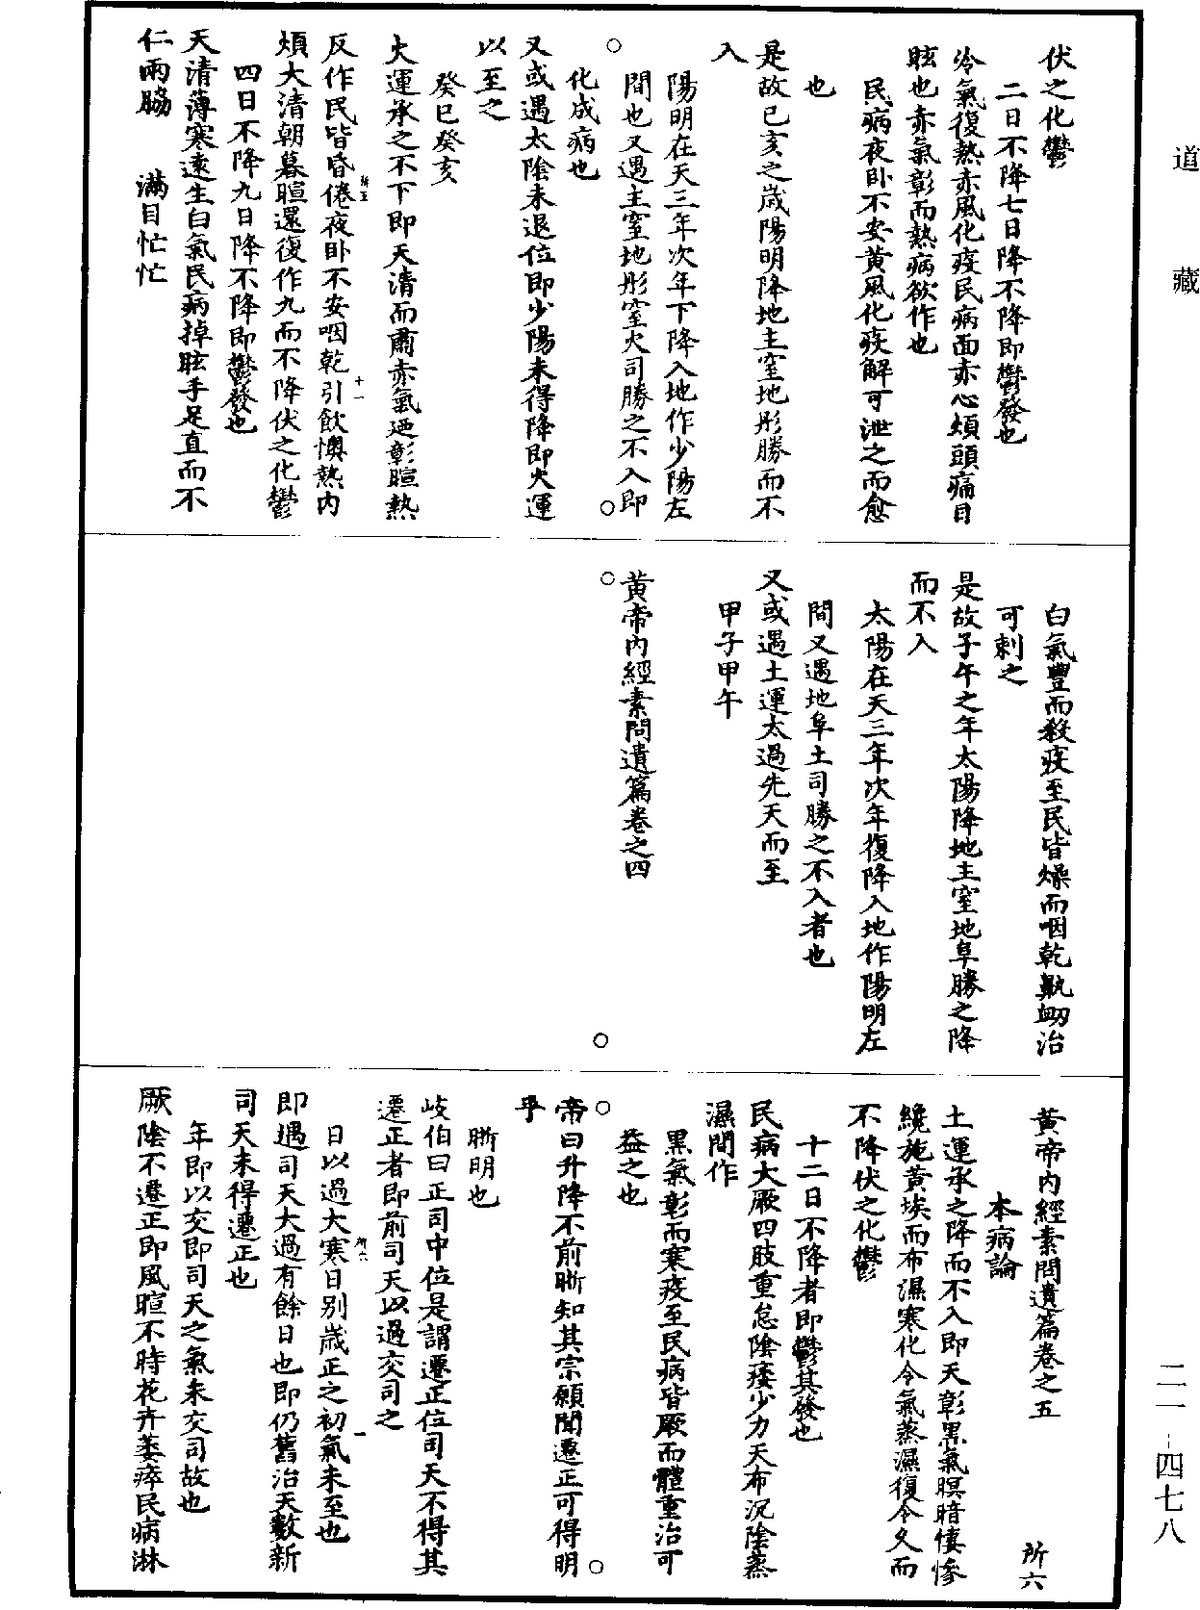 道藏
伏之化鬱
二日不降七日降不降即鬱發也
冷氣復熱赤風化疫民病面赤心煩頭痛目
眩也赤氣彰而熱病欲作也
民病夜卧不安黃風化疾解可泄之而愈
也
是故已亥之歲陽明降地主窒地彤勝而不
入
陽明在天三年次年下降入地作少陽左
間也又遇主窒地彤窒火司勝之不入即
化成病也
又或遇太陰未退位即少陽未得降即火運
以至之
癸巳癸亥
火運承之不下即天清而肅赤氣廼彰暄熱
反作民皆昏倦夜卧不安咽乾引飲懊熱內
煩大清朝暮暄還復作九而不降伏之化鬱
四日不降九日降不降即鬱發也
天清薄寒遠生白氣民病掉眩手足直而不
仁兩脇滿目忙忙
白氣豐而殺疫至民皆燥而咽乾鼽衂治
可刺之
是故子午之年太陽降地主窒地阜勝之降
而不入
太陽在天三年次年復降入地作陽明左
間又遇地阜土司勝之不入者也
又或遇土運太過先天而至
甲子甲午
黃帝內經素問遺篇卷之四
黃帝內經素問遺篇卷之五
所六
本病論
土運承之降而不入即天彰黑氣暝暗悽慘
纔施黃埃而布濕寒化令氣蒸濕復令久而
不降伏之化鬱
十二日不降者即鬱其發也
民病大厥四肢重怠陰痿少力天布沉陰蒸
濕間作
黑氣彰而寒疫至民病皆厥而體重治可
益之也
帝曰升降不前晰知其宗願聞遷正可得明
乎
晰明也
岐伯曰正司中位是謂遷正位司天不得其
遷正者即前司天以過交司之
日以過大寒日別歲正之初氣未至也
即遇司天大過有餘日也即仍舊治天數新
司天未得遷正也
年即以交即司天之氣未交司故也
厥陰不遷正即風暄不時花卉萎瘁民病淋
二一-四七八